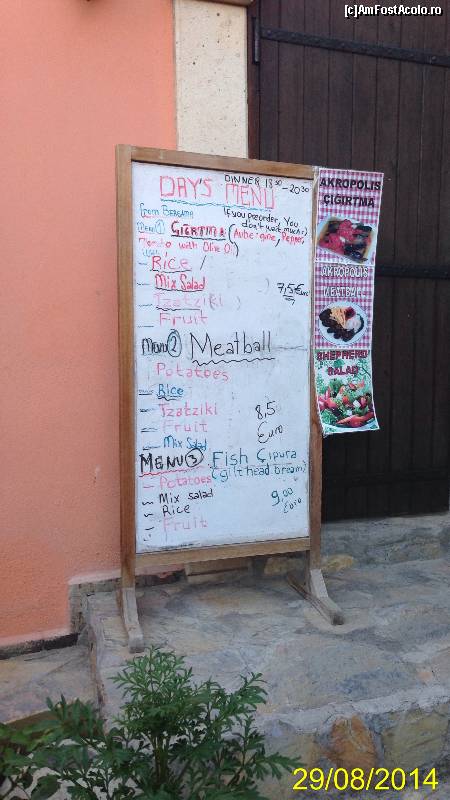 [c]AmFostAcolo.ro
DINNER 18:30 - 20:30
DAY'S MENU
from BERGAMA
If you preorder, You
don't wait much:)
Menu 1 GIĞIRTMA (Aubergine, Pepper,
Tomato with Olive Oil)
Rice
Mix Salad
7,5 €uro
Tzatziki
Fruit
Menu 2 Meatball
Potatoes
Rice
Tzatziki
8,5
Fruit
Euro
Mix Salad
MENU 3 Fish Çipura
Potatoes
(gilt head bream)
Mix salad
9,00
Rice
Euro
Fruit
AKROPOLIS
ÇIGIRTMA
AKROPOLIS
MEATBALL
SHEPHERD
SALAD
29/08/2014